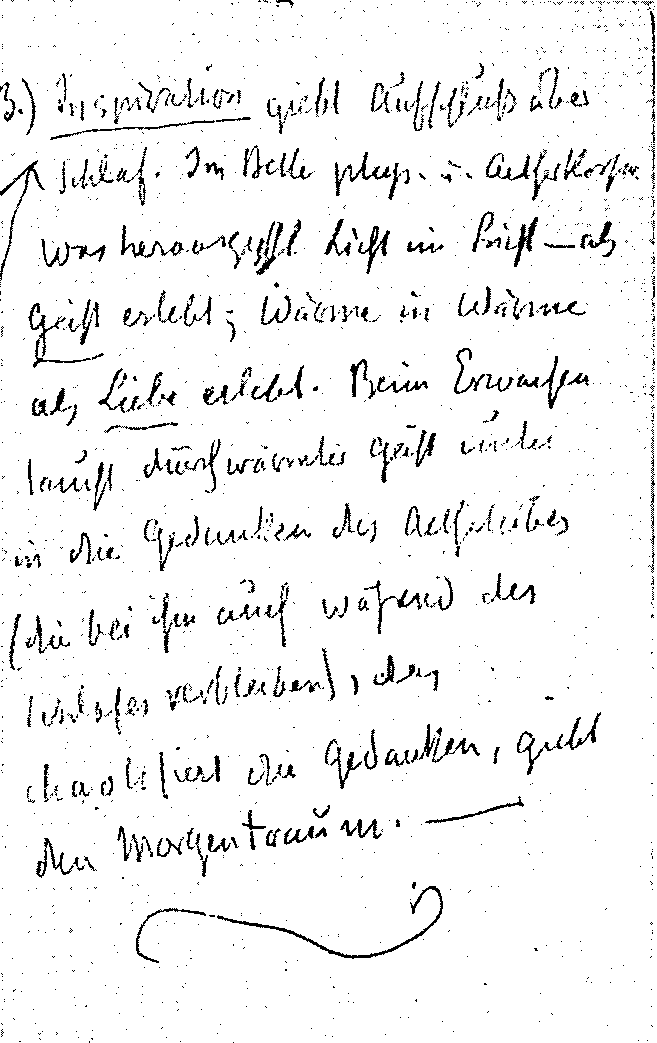 3.) Inspiration giebt Aufschluß über
Schlaf. Im Bette phys. u. Aetherkörper
was herausgeht Licht im Licht — als
Geist erlebt; Wärme in Wärme
als Liebe erlebt. Beim Erwachen
taucht durchwärmter Geist unter
in die Gedanken des Aetherleibes
(die bei ihm auch während des
Schlafes verbleiben), das
chaotisiert die Gedanken, giebt
den Morgentraum. —